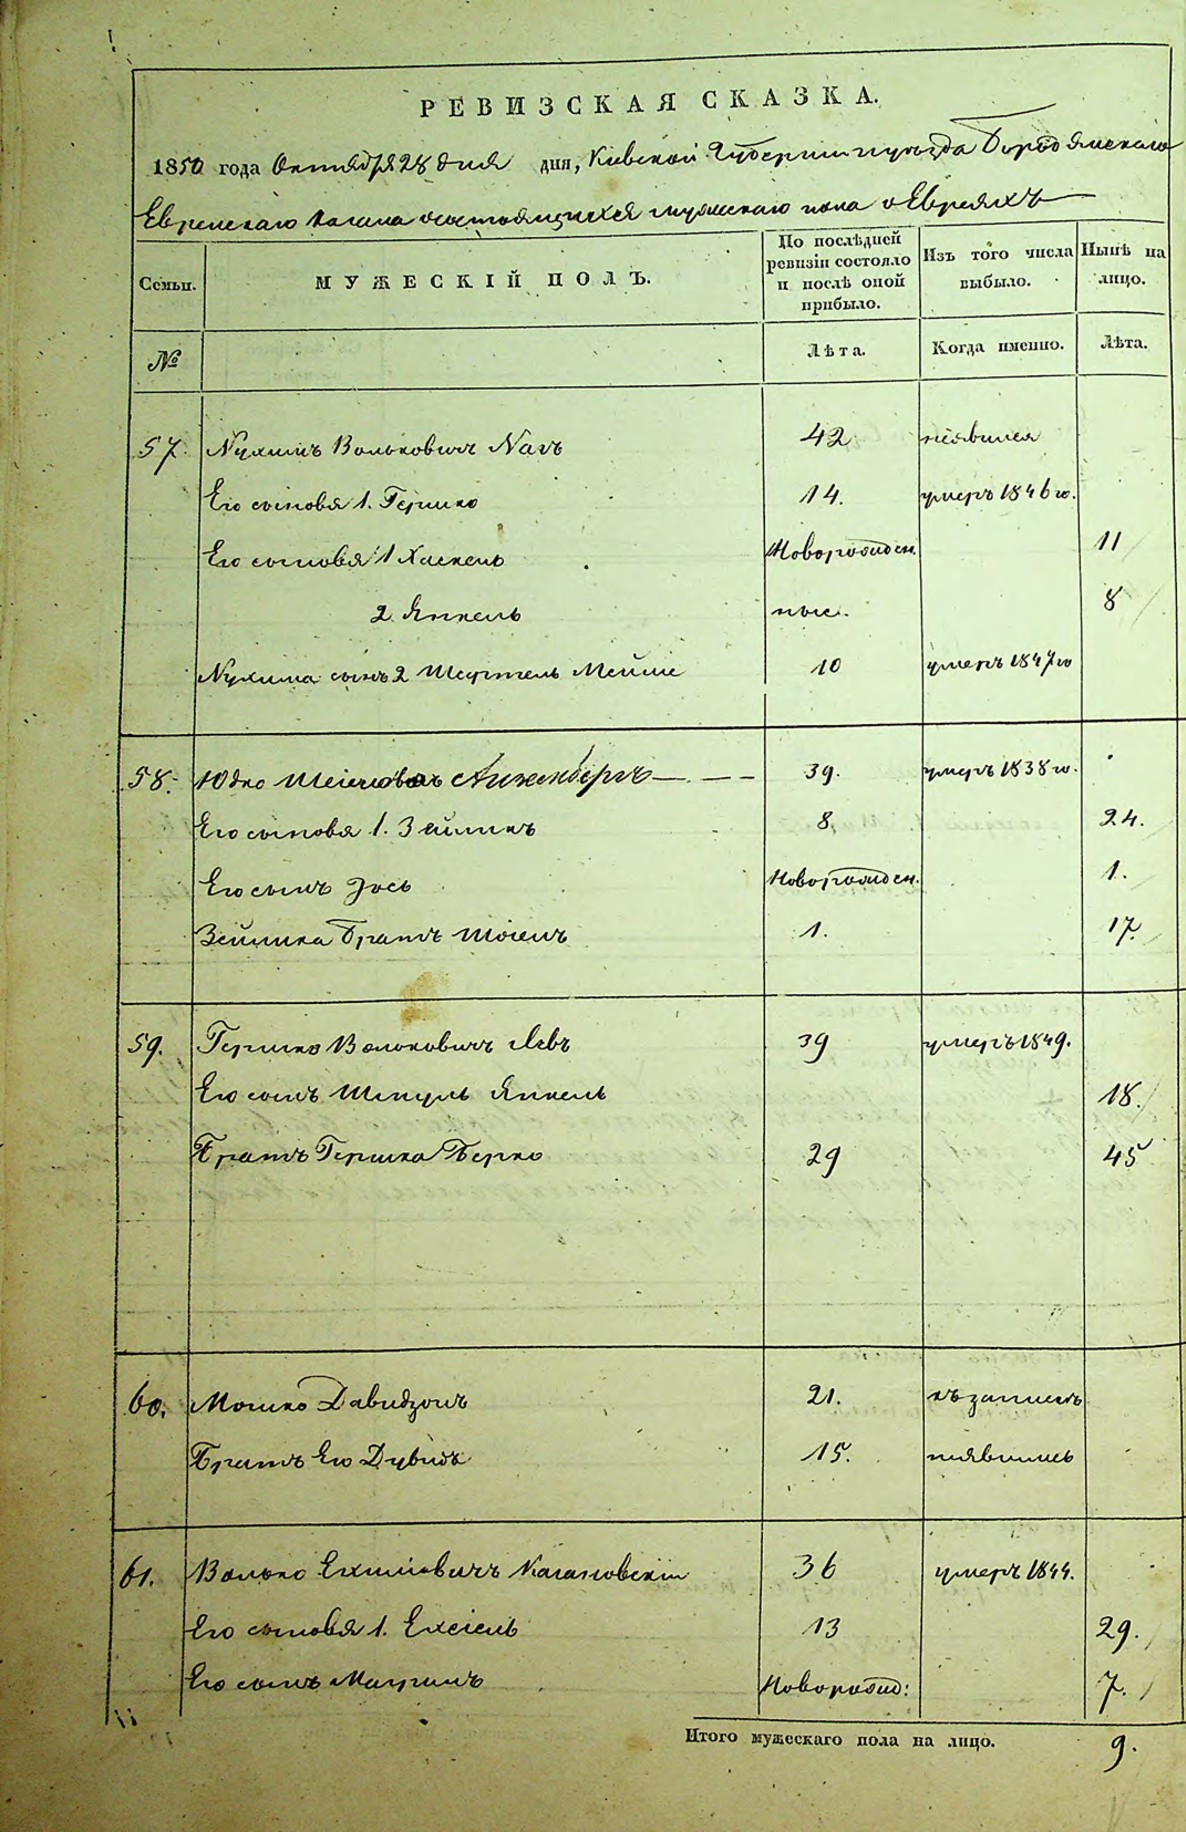 РЕВИЗСКАЯ СКАЗКА.
1850 года Октября 28 дня дня, Киевской Губернии и уезда Бородянскаго
Еврейскаго Кагала о состоящихся мужескаго пола о Евреяхъ
Семьи. МУЖЕСКІЙ ПОЛЪ. По послѣдней ревизіи состояло и послѣ оной прибыло. Изъ того числа выбыло. Нынѣ на лицо.
№ Лѣта. Когда именно. Лѣта.
57. Нухимъ Вольковичъ 42 неявился
Его сыновья 1. Гершко 14. умеръ 1846го.
Его сыновья 1 Хаскель Новорожден. 11
2. Янкель ные. 8
Нухима сынъ 2 Шефтель 10 умеръ 1847го
58. Юдко Аизенбергъ 39. умеръ 1838го.
Его сыновья 1. Зейликъ 8 24.
Его сынъ Іось Новорожден. 1.
Зейлика братъ 1. 17.
59. Гершко Вольковичъ Левъ 39 умеръ 1849.
Его сынъ Янкель 18.
Братъ Гершка Берко 29 45
60. Мошко Давидзонъ 21. къ запискѣ
Братъ Его Дувидъ 15. неявились
61. Волько Кагановскій 36 умеръ 1844.
Его сыновья 1. Ехсіель 13 29.
Его сынъ Новорожд: 7.
Итого мужескаго пола на лицо. 9.